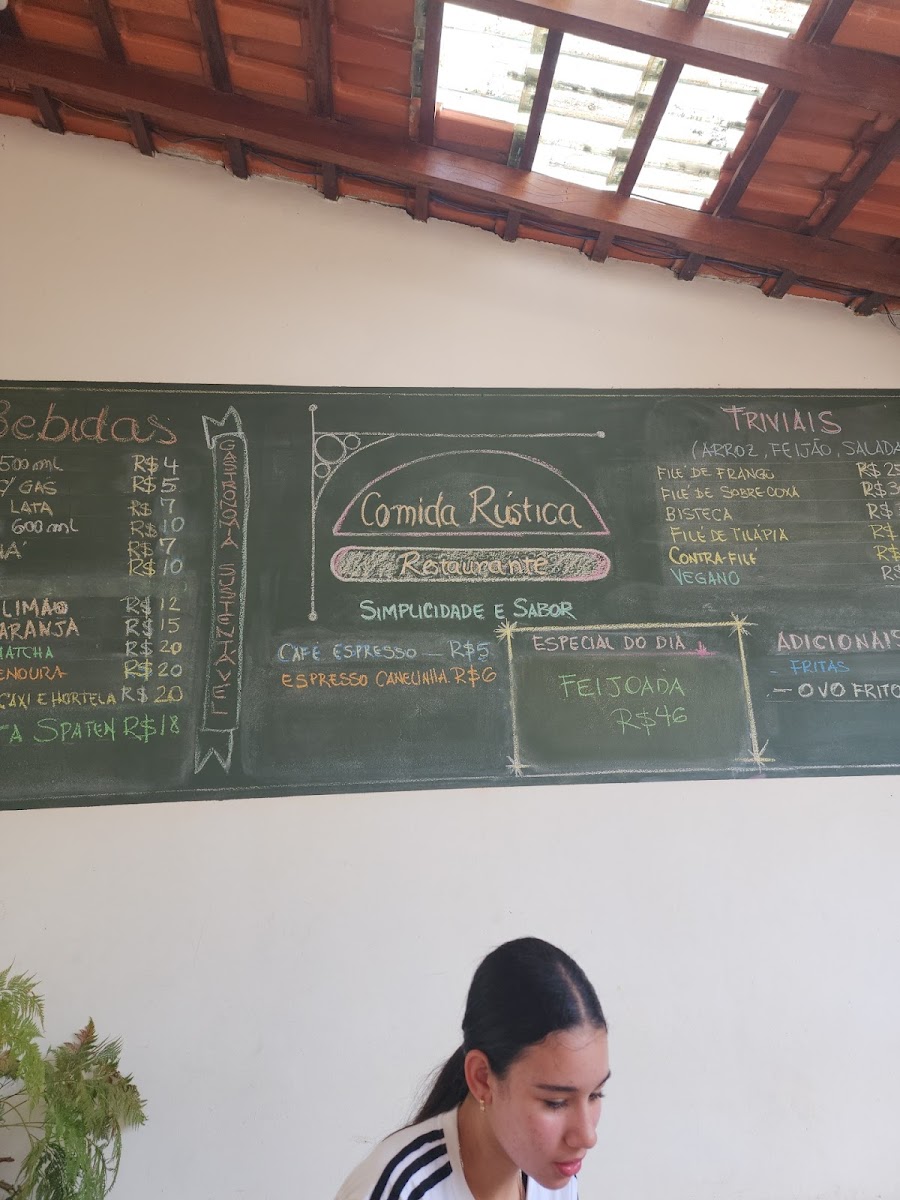 Bebidas
500ml R$4
C/ GAS R$5
LATA R$ 7
600ml R$10
R$7
R$10
LIMÃO R$ 12
ARANJA R$ 15
MATCHA R$ 20
ENOURA R$20
CAXI E HORTELÃ R$ 20
TA SPATEN R$18
GASTRONOMIA SUSTENTAVEL
Comida Rústica
Restaurante
SIMPLICIDADE E SABOR
CAFÉ ESPRESSO — R$5
ESPRESSO CANELINHA R$6
ESPECIAL DO DIA
FEIJOADA
R$46
TRIVIAIS
(ARROZ, FEIJÃO, SALADA
FILÉ DE FRANGO R$ 25
FILÉ DE SOBRECOXA R$
BISTECA R$
FILÉ DE TILÁPIA R$
CONTRA-FILÉ R$
VEGANO R$
ADICIONAIS
- FRITAS
- OVO FRITO